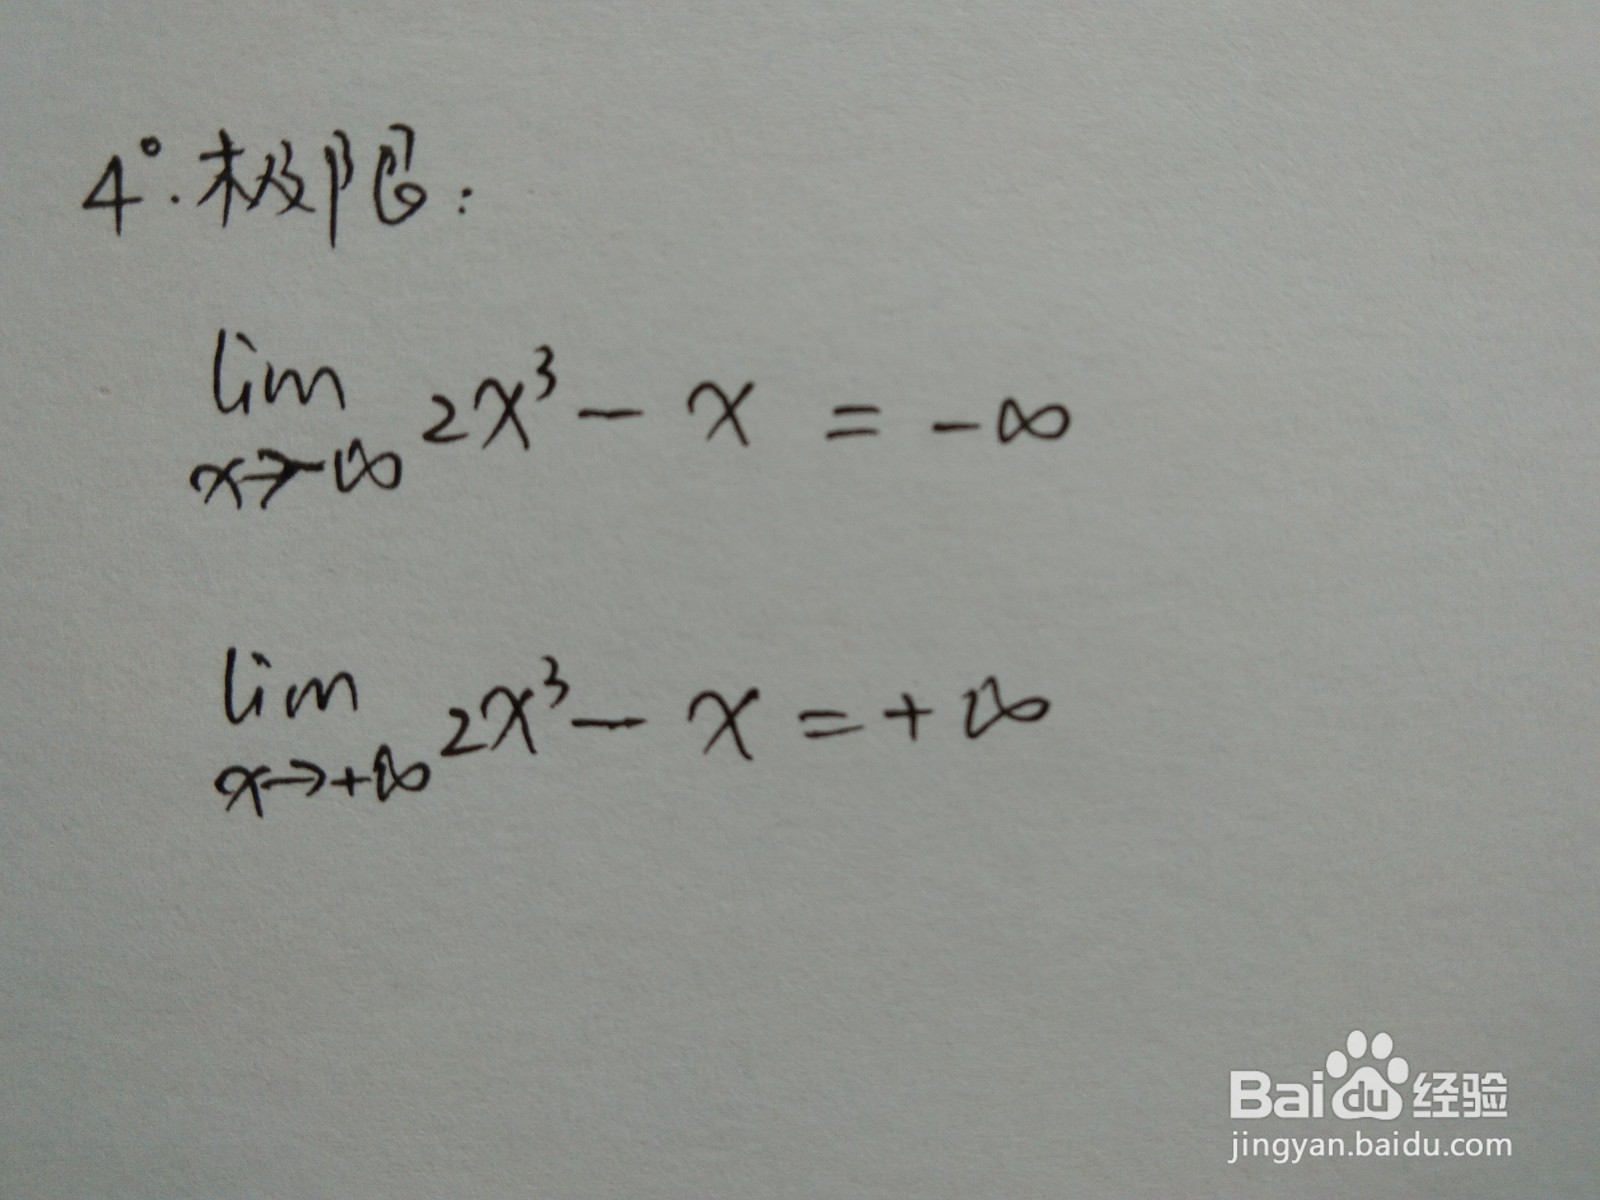 4°.极限:
lim 2x³ - x = -∞
x→-∞
lim 2x³ - x = +∞
x→+∞
Baidu 经验
jingyan.baidu.com